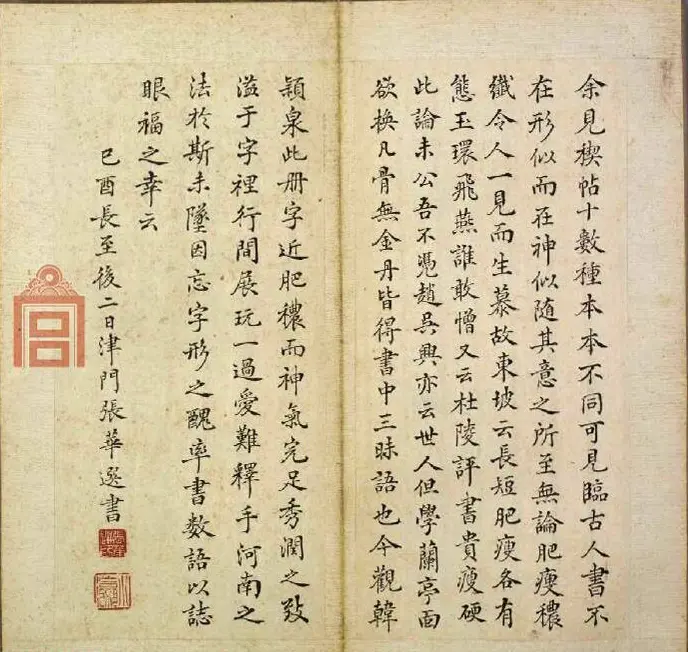 余見禊帖十數種本本不同可見臨古人書不
在形似而在神似隨其意之所至無論肥瘦穠
纖令人一見而生慕故東坡云長短肥瘦各有
態玉環飛燕誰敢憎又云杜陵評書貴瘦硬
此論未公吾不憑趙吳興亦云世人但學蘭亭面
欲換凡骨無金丹皆得書中三昧語也今觀韓
潁泉此册字近肥穠而神氣完足秀潤之致
溢于字裡行間展玩一過愛難釋手河南之
法於斯未墜因忘字形之醜率書數語以誌
眼福之幸云
己酉長至後二日津門張華選書